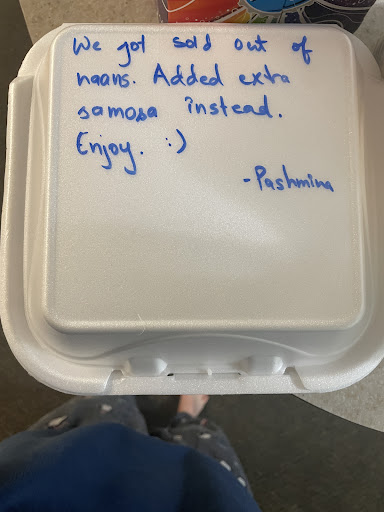 We got sold out of
naans. Added extra
samosa instead.
Enjoy. :)
-Pashmina